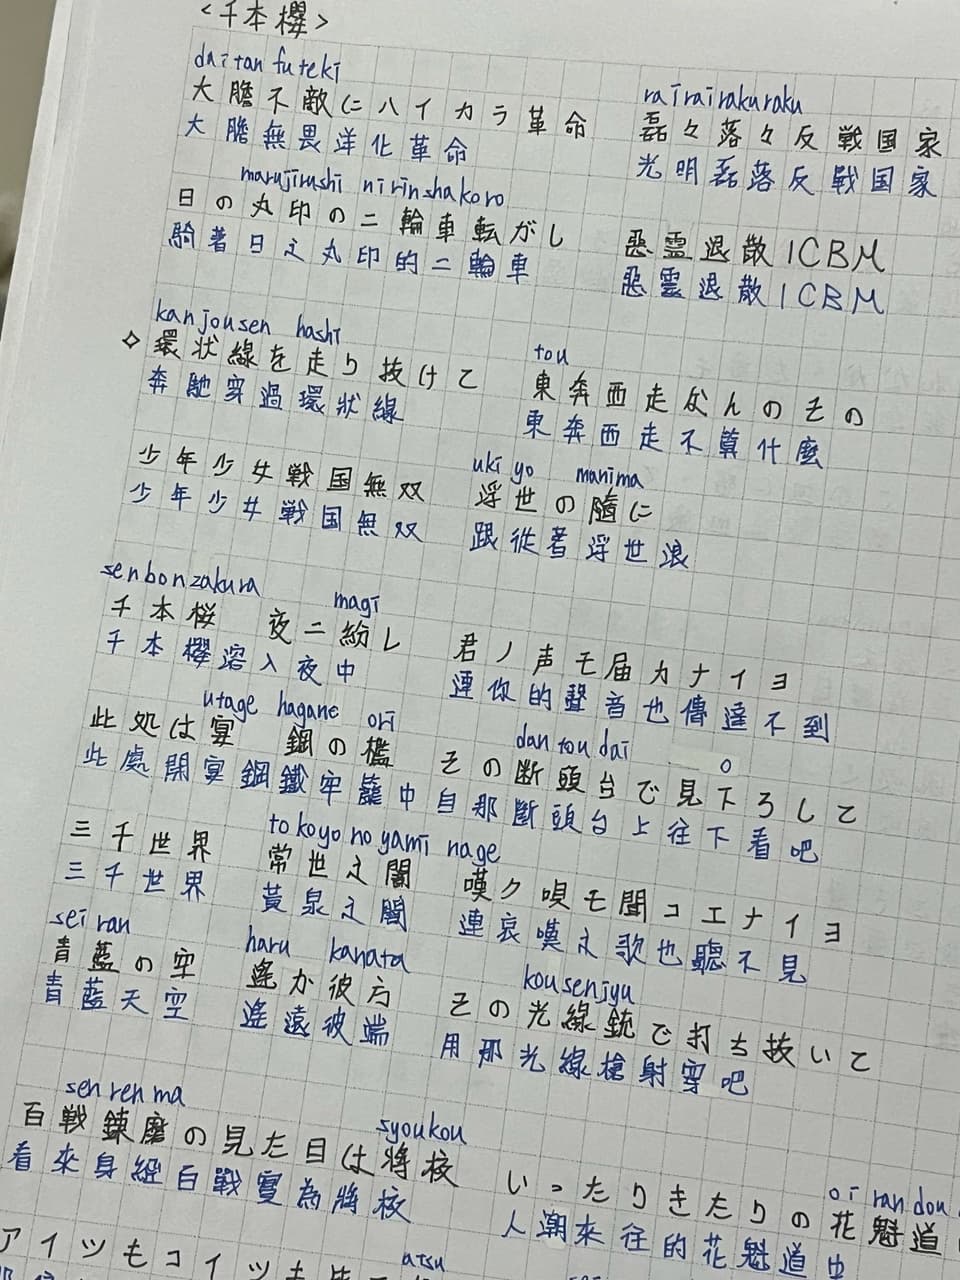 <千本櫻>
daitan futeki
大膽不敵にハイカラ革命
大膽無畏洋化革命
rairairakuraku
磊々落々反戦国家
光明磊落反戰国家
marujirushi nirinshakoro
日の丸印の二輪車転がし
騎著日之丸印的二輪車
悪霊退散ICBM
惡靈退散ICBM
kanjousen hashi
◇環状線を走り抜けて
奔馳穿過環狀線
tou
東奔西走なんのその
東奔西走不算什麼
少年少女戦国無双
少年少女戰国無双
ukiyo manima
浮世の隨に
跟從著浮世浪
senbonzakura
magi
千本桜 夜ニ紛レ
千本櫻溶入夜中
君ノ声モ届カナイヨ
連你的聲音也傳達不到
utage hagane ori
此処は宴 鋼の檻
此處開宴鋼鐵牢籠中
dantoudai o
その断頭台で見下ろして
自那斷頭台上往下看吧
三千世界
三千世界
tokoyonoyami nage
常世之闇
黃泉之闇
嘆ク唄モ聞コエナイヨ
連哀嘆之歌也聽不見
seiran
青藍の空
青藍天空
haru kanata
遙か彼方
遙遠彼端
kousenjyu
その光線銃で打ち抜いて
用那光線槍射穿吧
senrenma
syoukou
百戦錬磨の見た目は将校
看來身經百戰實為將校
oirandou
いったりきたりの花魁道
人潮來往的花魁道中
atsu
アイツもコイツも